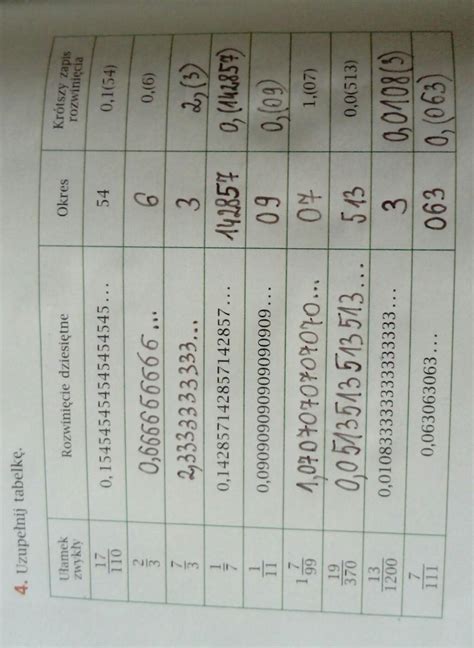 4. Uzupełnij tabelkę.
Ułamek zwykły | Rozwinięcie dziesiętne | Okres | Krótszy zapis rozwinięcia
17/110 | 0,1545454545454545454545... | 54 | 0,1(54)
2/3 | 0,6666666666... | 6 | 0,(6)
7/3 | 2,33333333333... | 3 | 2,(3)
1/7 | 0,142857142857142857... | 142857 | 0,(142857)
1/11 | 0,0909090909090909... | 09 | 0,(09)
1 7/99 | 1,0707070707070... | 07 | 1,(07)
19/370 | 0,0513513513513... | 513 | 0,0(513)
13/1200 | 0,010833333333333333... | 3 | 0,0108(3)
7/111 | 0,063063063... | 063 | 0,(063)